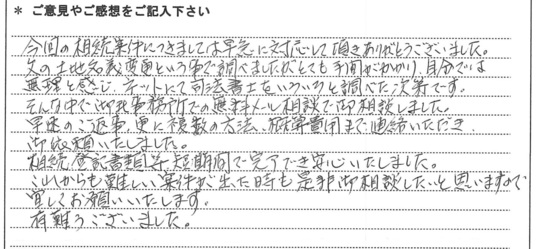 * ご意見やご感想をご記入下さい
今回の相続案件につきましては早急に対応して頂きありがとうございました。
父の土地名義変更という事で調べましたがとても手間がかかり、自分では
無理と感じ、ネットにて司法書士をいろいろと調べた次第です。
そんな中で御社事務所での無料メール相談で御相談しました。
早速のご返事、更に複数の方法、概算費用まで連絡いただき、
御依頼いたしました。
相続登記書類等短期間で完了でき安心いたしました。
これからも難しい案件が出た時も是非御相談したいと思いますので
宜しくお願いいたします。
有難うございました。